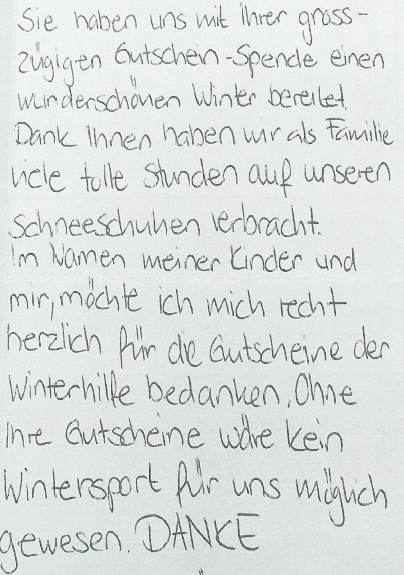 Sie haben uns mit Ihrer gross-
zügigen Gutschein-Spende einen
wunderschönen Winter bereitet.
Dank Ihnen haben wir als Familie
viele tolle Stunden auf unseren
Schneeschuhen verbracht.
Im Namen meiner Kinder und
mir, möchte ich mich recht
herzlich für die Gutscheine der
Winterhilfe bedanken. Ohne
Ihre Gutscheine wäre kein
Wintersport für uns möglich
gewesen. DANKE